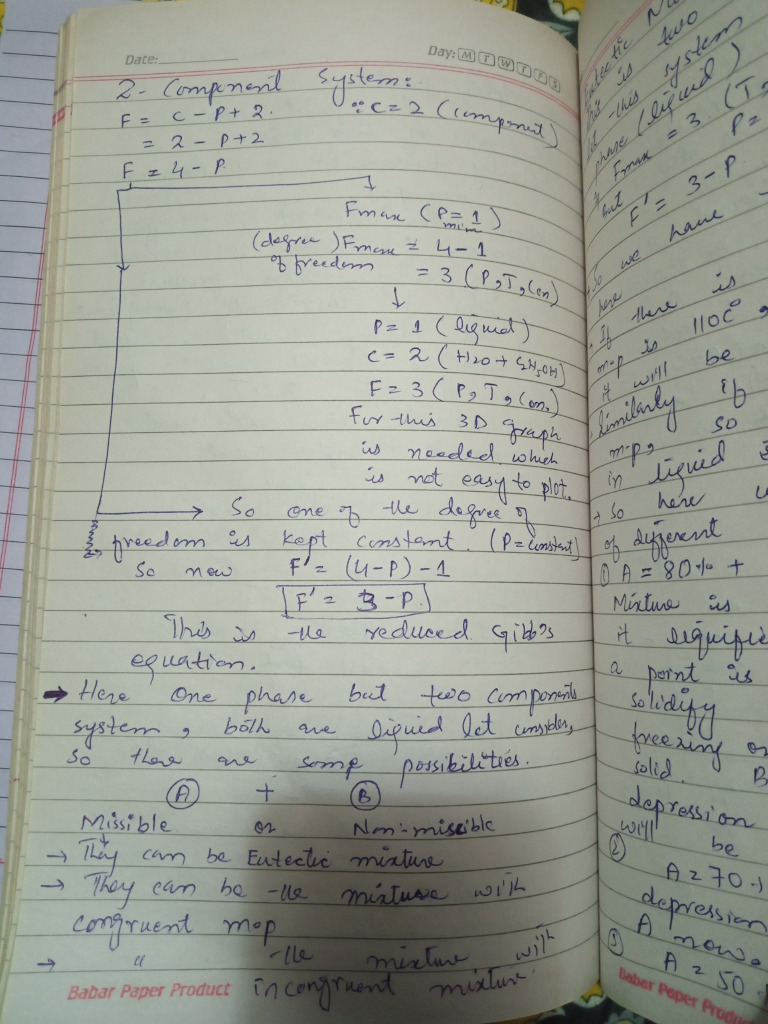 Date:
Day: M T W T F S
2- Component System:
F = C - P + 2. ∵ C = 2 (component)
= 2 - P + 2
F = 4 - P
Fmax (P = 1)
min
(degree of freedom) Fmax = 4 - 1
= 3 (P, T, Con)
P = 1 (liquid)
C = 2 (H2O + C2H5OH)
F = 3 (P, T, Con.)
For this 3D graph
is needed which
is not easy to plot.
So one of the degree of
freedom is kept constant. (P = constant)
So now F' = (4-P) - 1
F' = 3 - P.
This is the reduced Gibb's
equation.
→ Here one phase but two components
system, both are liquid let consider,
so there are some possibilities.
A + B
Missible or Non-miscible
→ They can be Eutectic mixture
→ They can be the mixture with
congruent m.p
→ " the mixture with
incongruent mixture.
Babar Paper Product
Eutectic
This is two
this system
phase (liquid)
Fmax = 3 (T,
but P =
F' = 3 - P
So we have
here
If there is
m.p is 110C°
it will be
Similarly if
m.p, so
in liquid
→ So here
of different
① A = 80% +
Mixture is
it liquifie
a point is
solidify
freezing
solid. B
depression
will be
② A = 70.
depression
A now
③ A = 50.
Babar Paper Produc